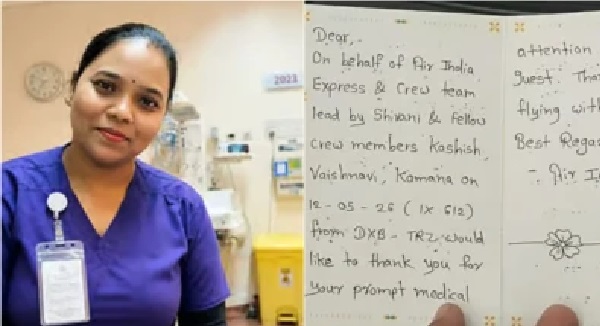 2021
Dear,-
On behalf of Air India
Express & Crew team
lead by Shivani & Fellow
crew members Kashish,
Vaishnavi, Kamana on
12-05-26 ( IX 612)
from DXB - TRZ, would
like to thank you for
your prompt medical
attention
guest. Tha
flying with
Best Regar
- Air In